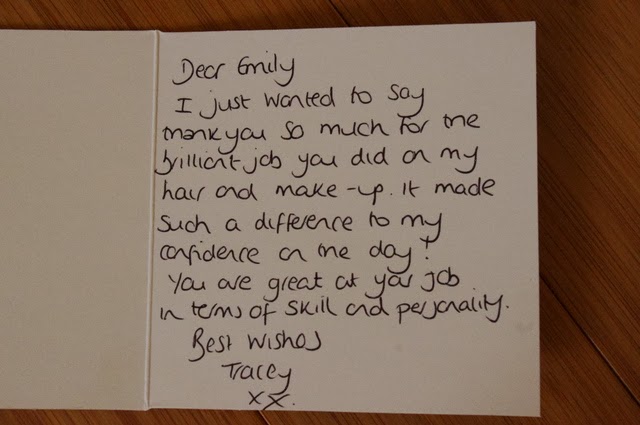 Dear Emily
I just wanted to say
thank you so much for the
brilliant job you did on my
hair and make-up. It made
such a difference to my
confidence on the day!
You are great at your job
in terms of skill and personality.
Best Wishes
Tracey
xx.